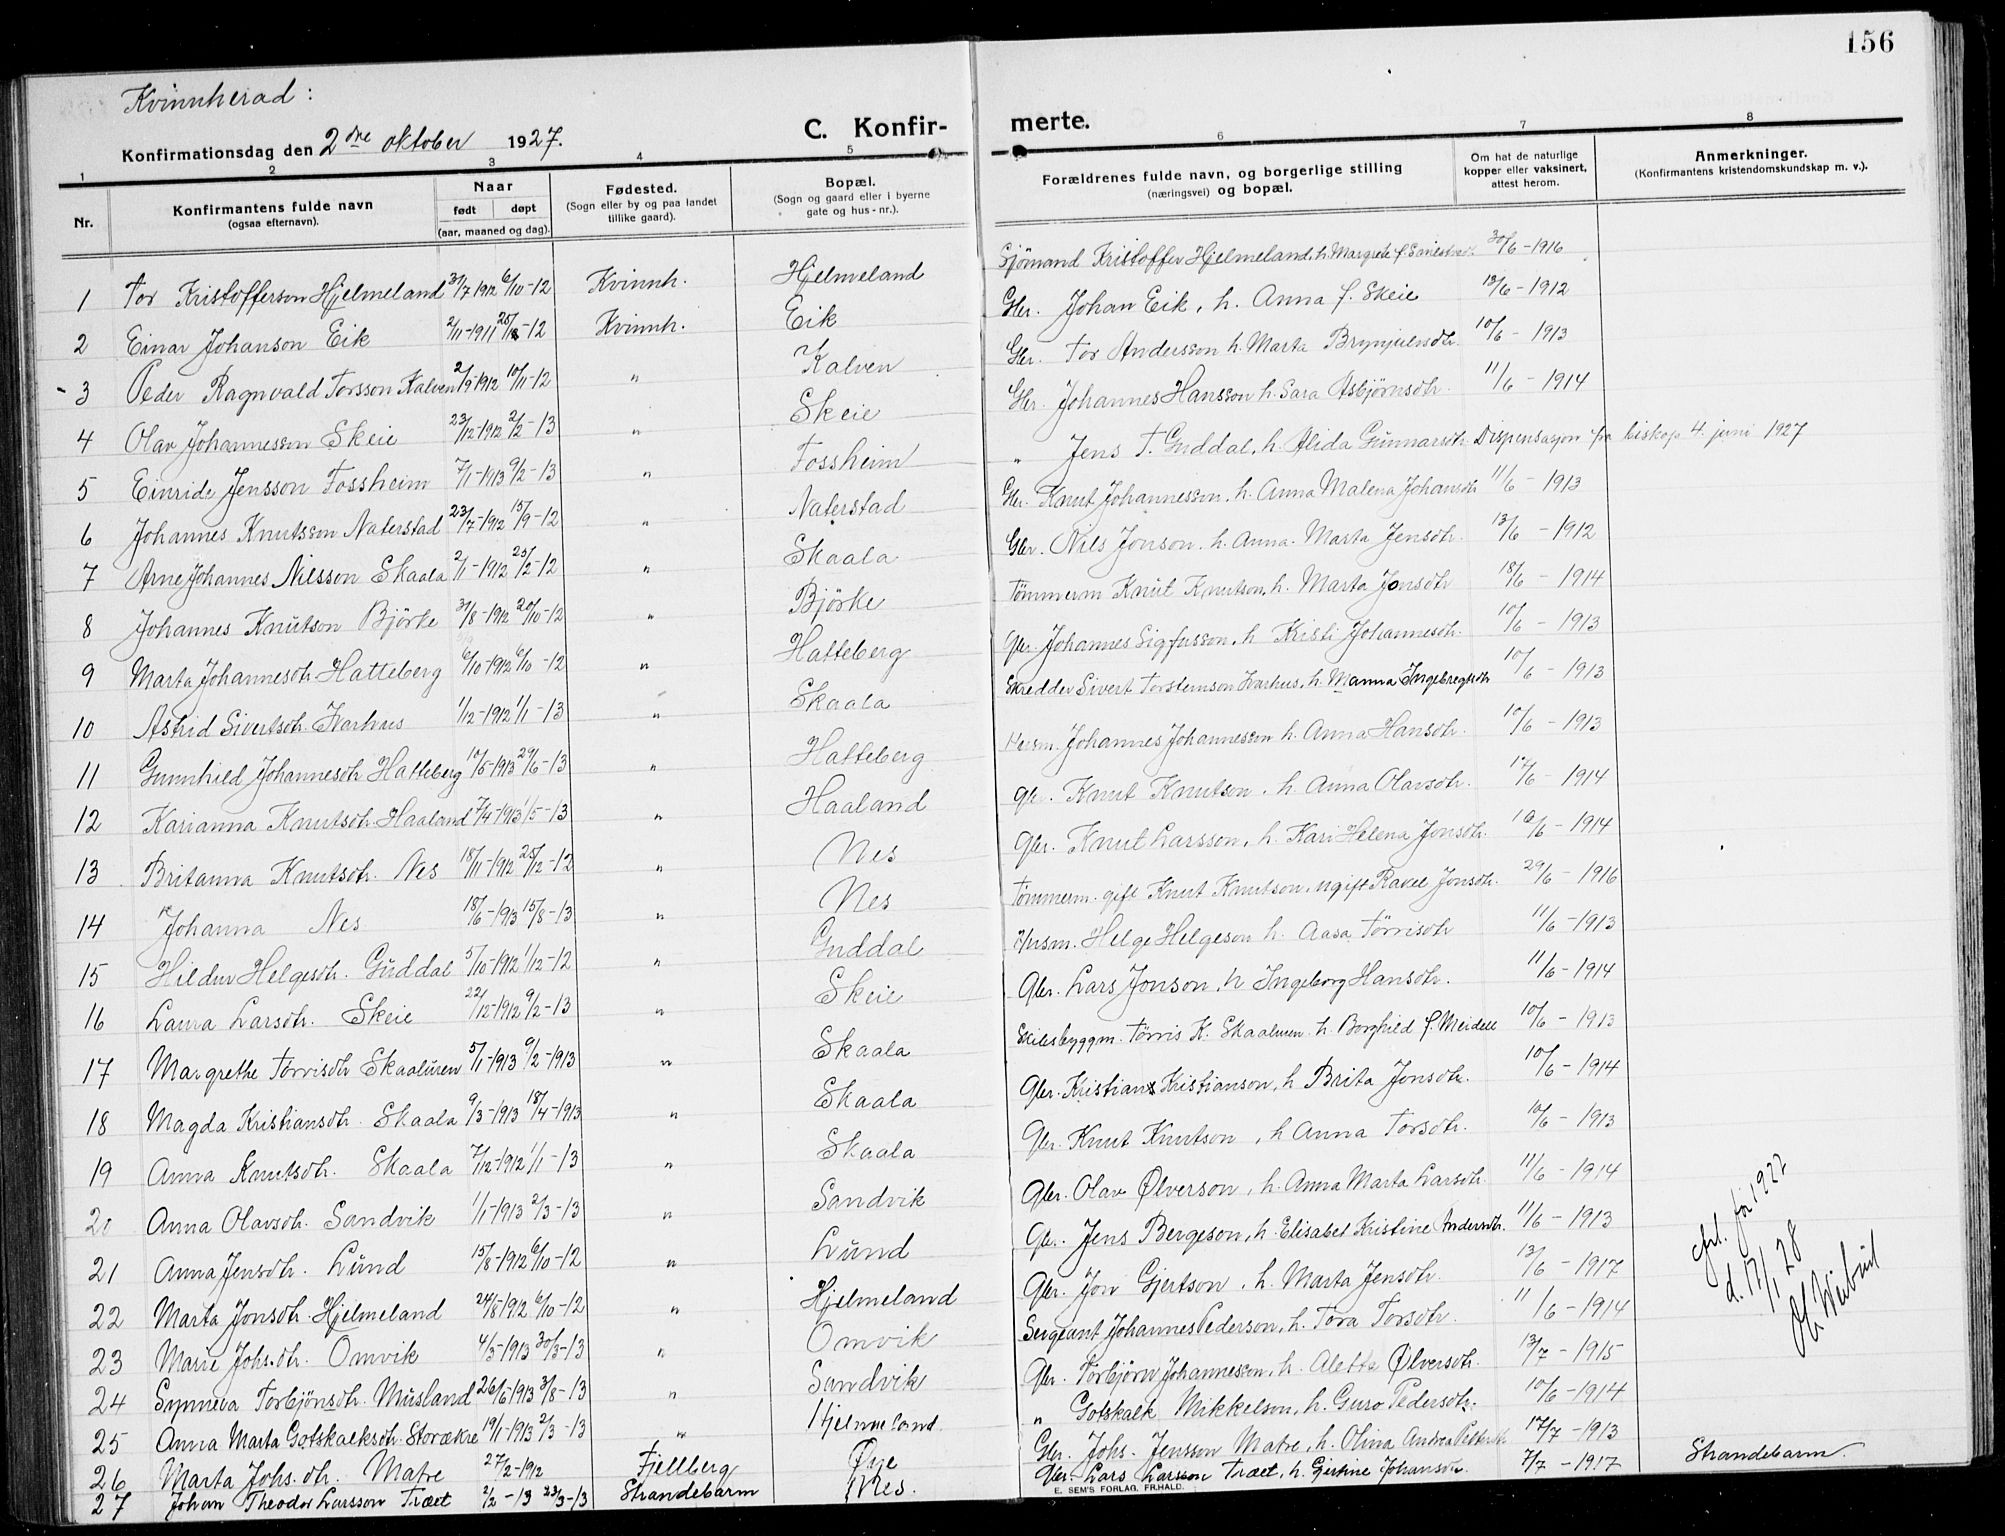 156
Kvinnherad:
C. Konfir- merte.
Konfirmationsdag den 2dre oktober 1927.
1 2 3 4 5 6 7 8
Nr. Konfirmantens fulde navn (ogsaa efternavn). Naar født døpt (aar, maaned og dag). Fødested. (Sogn eller by og paa landet tillike gaard). Bopæl. (Sogn og gaard eller i byerne gate og hus-nr.). Forældrenes fulde navn, og borgerlige stilling (næringsvei) og bopæl. Om hat de naturlige kopper eller vaksinert, attest herom. Anmerkninger. (Konfirmantens kristendomskundskap m. v.).
1 Tor Kristofferson Hjelmeland 31/7 1912 6/10-12 Kvinnh. Hjelmeland Sjömand Kristoffer Hjelmeland, h. Margrete f. 30/6-1916
2 Einar Johanson Eik 2/11-1911 -12 Kvinnh. Eik Gbr. Johan Eik, h. Anna f. Skeie 13/6-1912
3 Peder Ragnvald Torsson Kalven 2/9-1912 10/11-12 " Kalven Gbr. Tor Andersson h. Marta Brynjulvsdtr. 10/6-1913
4 Olav Johannesson Skeie 23/12-1912 2/2-13 " Skeie Gbr. Johannes Hansson h. Sara Asbjørnsdtr. 11/6-1914
5 Einride Jensson Fossheim 7/1-1913 9/2-13 " Fossheim " Jens T. Guddal, h. Alida Gunnarsdtr. Dispensasjon fra biskop 4. juni 1927
6 Johannes Knutsson Naterstad 23/7-1912 15/9-12 " Naterstad Gbr. Knut Johannesson, h. Anna Malena Johansdtr 11/6-1913
7 Arne Johannes Nilsson Skaala 2/1-1912 25/2-12 " Skaala Gbr. Nils Jonson, h. Anna Marta Jensdtr. 13/6-1912
8 Johannes Knutson Björke 31/8-1912 20/10-12 " Björke Tömmerm Knut Knutson, h. Marta Jonsdtr 18/6-1914
9 Marta Johannesdtr. Hatteberg 6/10-1912 6/10-12 " Hatteberg Gbr. Johannes Sigfusson, h. Kristi Johannesdtr. 10/6-1913
10 Astrid Sivertsdtr. Ivarhus 1/12-1912 1/1-13 " Skaala Skredder Sivert Torstemson Ivarhus, h. Manna Ingebregtsdtr 10/6-1913
11 Gunnhild Johannesdtr Hatteberg 10/5-1913 29/6-13 " Hatteberg Husm. Johannes Johannesson h. Anna Hansdtr. 10/6-1913
12 Karianna Knutsdtr. Haaland 7/4-1913 1/5-13 " Haaland Gbr. Knut Knutson, h. Anna Olavsdtr. 17/6-1914
13 Britanna Knutsdtr. Nes 18/11-1912 25/12-12 " Nes Gbr. Knut Larsson, h. Kari Helena Jonsdtr. 10/6-1914
14 Johanna Nes 18/6-1913 15/8-13 " Nes Tömmerm. gift Knut Knutson, ugift Ravel Jonsdtr. 29/6-1916
15 Hildur Helgesdtr. Guddal 5/10-1912 1/12-12 " Guddal Husm. Helge Helgeson h. Aasa Törrisdtr 11/6-1913
16 Laura Larsdtr. Skeie 22/12-1912 9/2-13 " Skeie Gbr. Lars Jonson, h Ingeborg Hansdtr. 11/6-1914
17 Margrethe Törrisdtr Skaaluren 5/1-1913 9/2-1913 " Skaala Skibsbyggm. Törris K. Skaaluren h. Borghild f. Meidell 10/6-1913
18 Magda Kristiansdtr. Skaala 9/3-1913 18/4-1913 " Skaala Gbr. Kristian Kristianson, h Brita Jonsdtr. 10/6-1914
19 Anna Knutsdtr. Skaala 7/12-1912 1/1-13 " Skaala Gbr. Knut Knutson, h Anna Torsdtr. 10/6-1913
20 Anna Olavsdtr. Sandvik 1/1-1913 2/3-13 " Sandvik Gbr. Olav Ølverson, h. Anna Marta Larsdtr. 11/6-1914
21 Anna Jensdtr. Lund 15/8-1912 6/10-12 " Lund Gbr. Jens Bergeson, h. Elisabet Kristine Andersdtr. 11/6-1913
22 Marta Jonsdtr. Hjelmeland 24/8-1912 6/10-12 " Hjelmeland Gbr. Jon Gjertson, h. Marta Jensdtr. 13/6-1917
23 Marie Johs.dtr. Omvik 4/3-1913 30/3-13 " Omvik Sergeant Johannes Pederson, h. Tora Torsdtr. 11/6-1914
24 Synneva Torbjönsdtr. Musland 26/5-1913 3/8-13 " Sandvik Gbr. Torbjörn Johannesson, h. Aletta Ølversdtr. 13/7-1915
25 Anna Marta Gotskalksdtr. Storækre 19/1-1913 2/3-13 " Hjelmeland " Gotskalk Mikkelson, h. Guro Pedersdtr. 10/6-1914
26 Marta Johs.dtr. Matre 27/2-1912 Fjellberg Øye Gbr. Johs. Jensson Matre, h. Olina Andrea 17/7-1913
27 Johan Theodor Larsson Træet 2/2-13 23/3-13 Strandebarm Nes. Gbr. Lars Larsson Træet, h. Gjertine Johansdtr. 7/7-1917 Strandebarm
for 1922
d. 17/1 28
E. SEM'S FORLAG, FR.HALD.